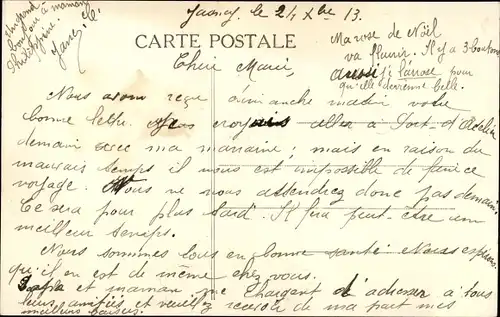 le 24 Xbre 13.
CARTE POSTALE
Ma rose de Noël
va fleurir. Il y a 3 boutons
aussi je l'arrose pour
qu'elle devienne belle.
bonjour à mamans
Chère Marie,
Nous avons reçu dimanche matin votre
bonne lettre. croyais aller à Port-d'Atelier
demain avec ma marraine ; mais en raison du
mauvais temps il nous est impossible de faire ce
voyage. Vous ne nous attendrez donc pas demain
Ce sera pour plus tard. Il fera peut-être un
meilleur temps.
Nous sommes tous en bonne santé Nous espérons
qu'il en est de même chez vous.
Papa et maman me chargent d'adresser à tous
leurs amitiés et veuillez recevoir de ma part mes
meilleurs baisers.